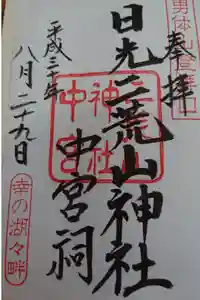 男体山登拝口
奉拝
日光二荒山神社
中宮祠
神社
中宮
平成三十年
八月二十九日
幸の湖々畔